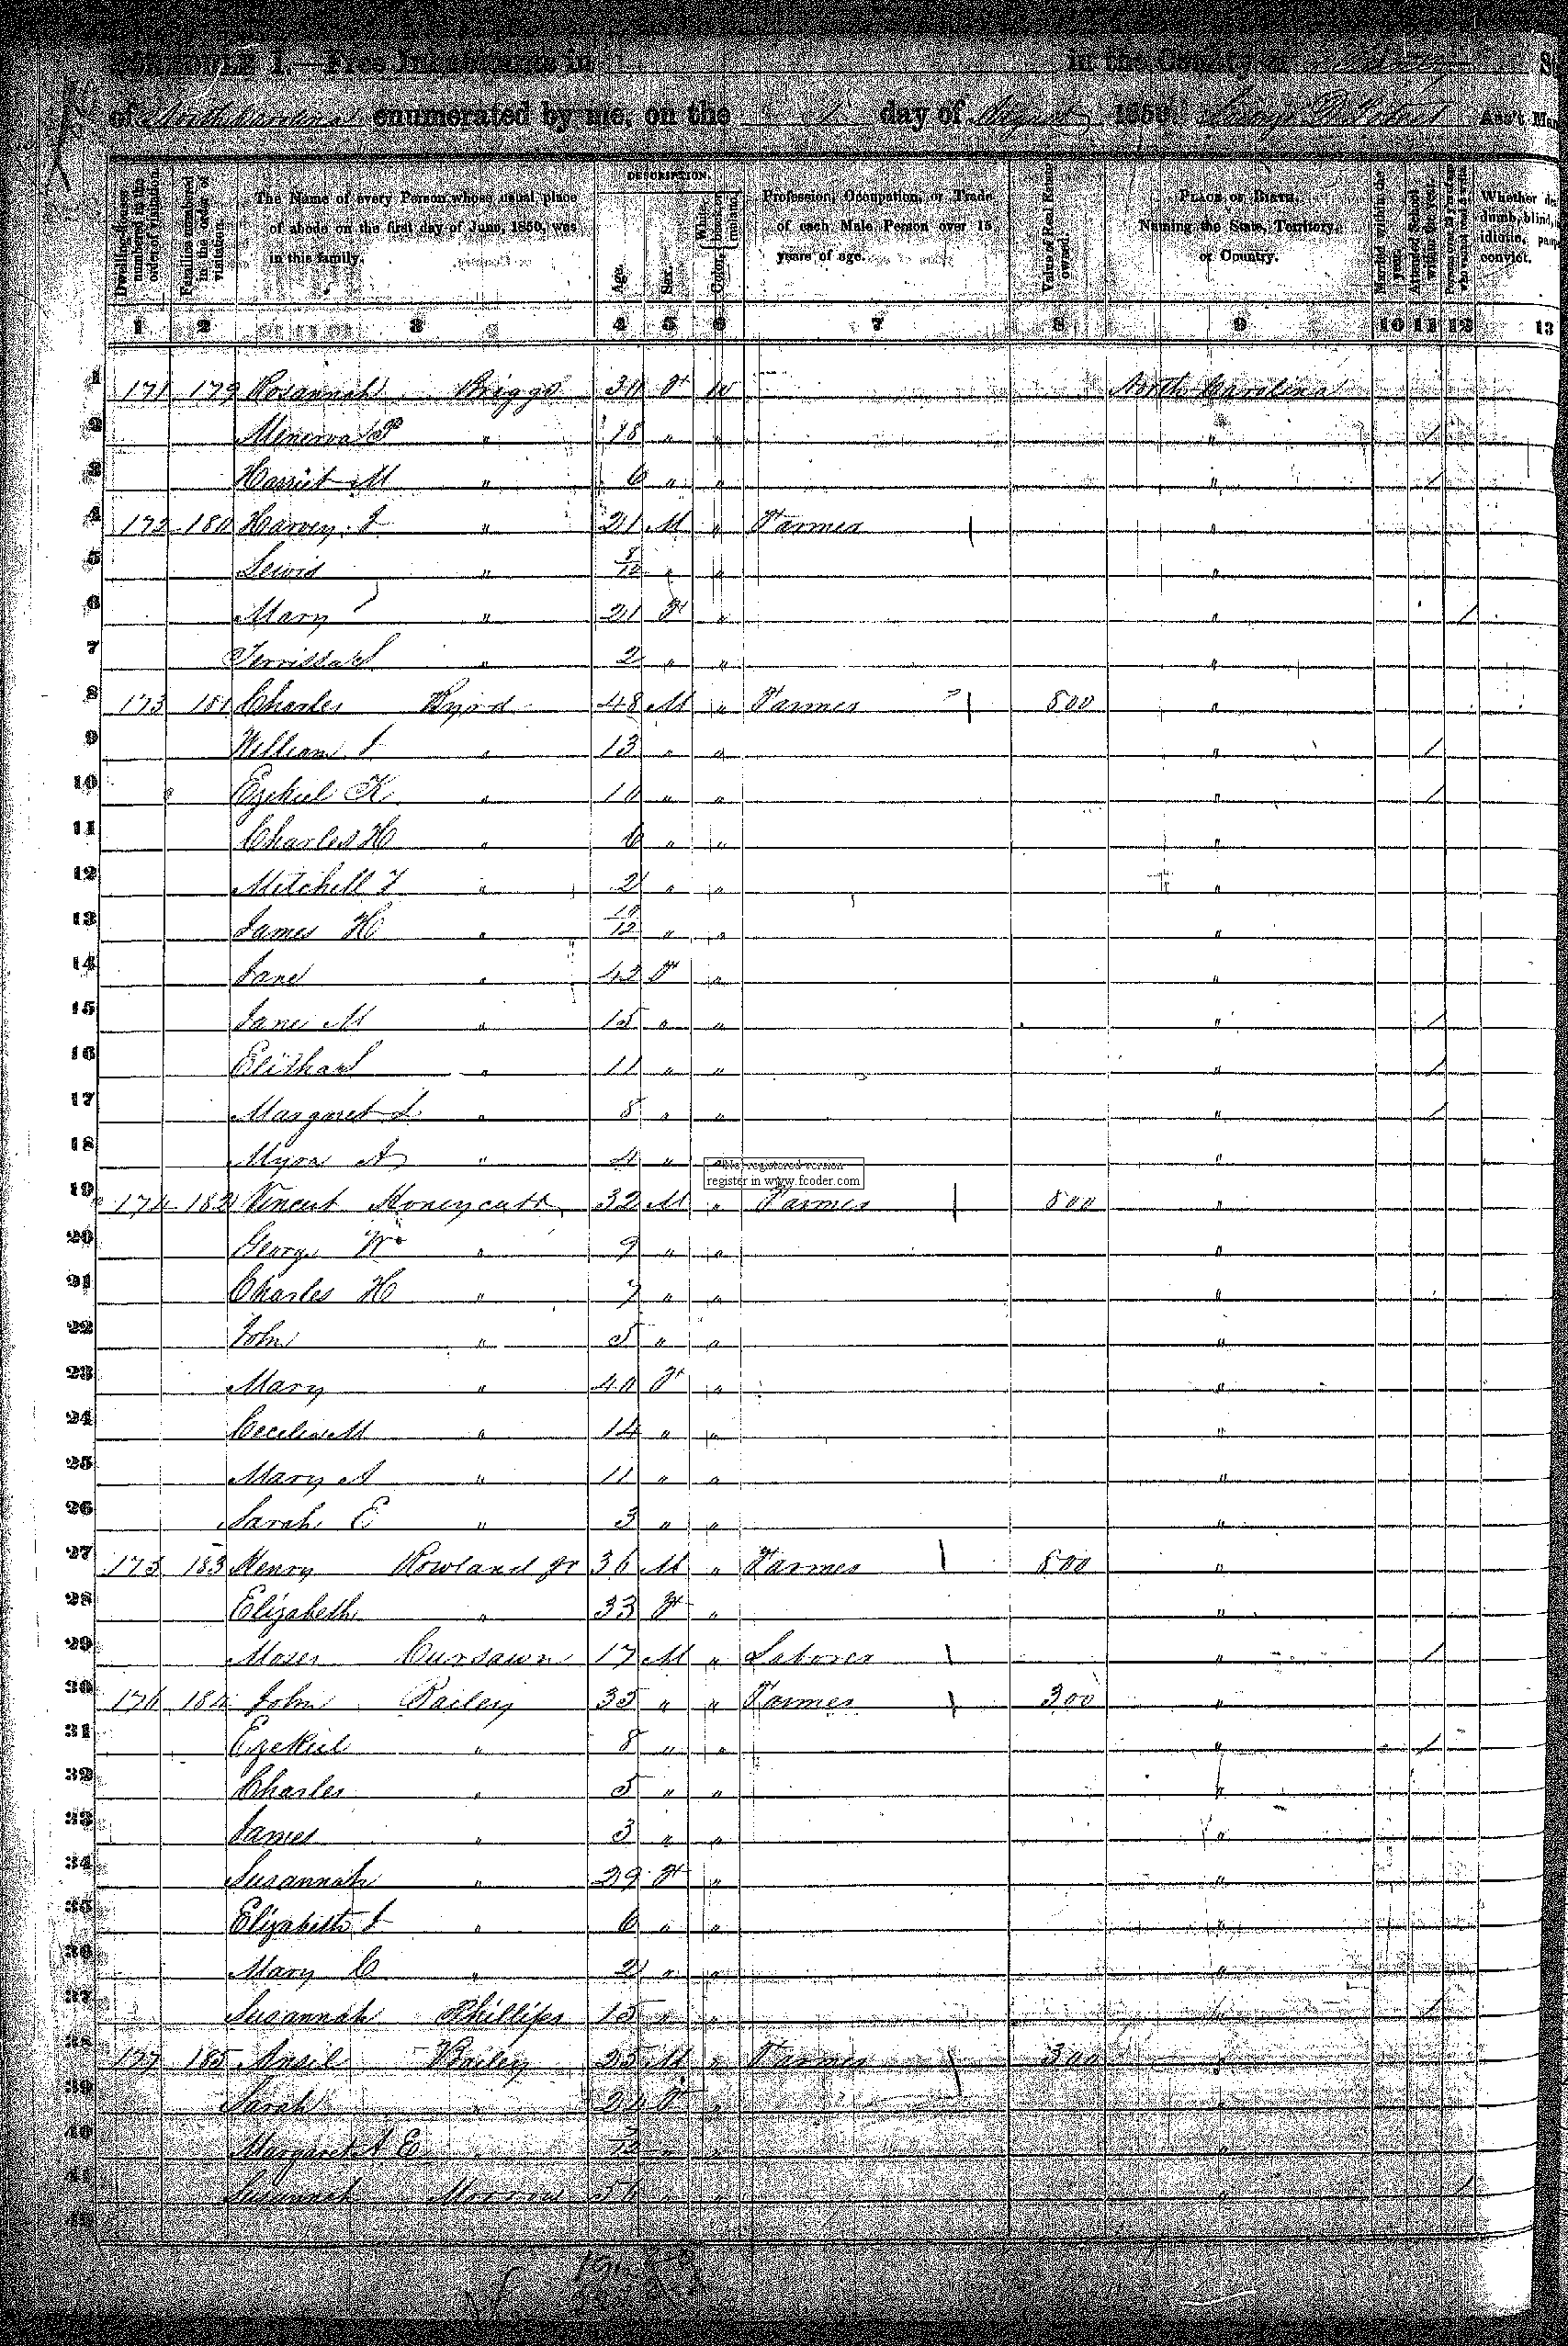 SCHEDULE I.—Free Inhabitants in in the County of
of North Carolina enumerated by me, on the 1 day of August 1850. Ass't Mar
Dwelling-houses numbered in the order of visitation.
Families numbered in the order of visitation.
The Name of every Person whose usual place of abode on the first day of June, 1850, was in this family.
DESCRIPTION.
Age.
Sex.
Color, White, black, or mulatto.
Profession, Occupation, or Trade of each Male Person over 15 years of age.
Value of Real Estate owned.
PLACE OF BIRTH. Naming the State, Territory, or Country.
Married within the year.
Attended School within the year.
Persons over 20 y'rs of age who cannot read & write.
Whether de dumb, blind, idiotic, paup convict.
1 2 3 4 5 6 7 8 9 10 11 12 13
1 171 179 Rosannah Briggs 30 F W North Carolina
2 Minerva P " 18 " " " /
3 Harriet M " 6 " " " /
4 172 180 Harvey J " 21 M " Farmer "
5 Lewis " 8/12 " " "
6 Mary " 21 F " " /
7 " 2 " " "
8 173 181 Charles Byrd 48 M " Farmer 800 "
9 William J " 13 " " " /
10 Ezekiel K " 10 " " " /
11 Charles H " 6 " " "
12 Mitchell T " 2 " " "
13 James H " 10/12 " " "
14 Jane " 42 F " "
15 Jane M " 15 " " " /
16 " 11 " " " /
17 Margaret L " 8 " " " /
18 Myra A " 4 " " "
Not registered version
register in www.fcoder.com
19 174 182 Vincent Honeycutt 32 M " Farmer 800 "
20 George W " 9 " " "
21 Charles H " 7 " " "
22 John " 5 " " "
23 Mary " 40 F " "
24 Cecelia M " 14 " " "
25 Mary A " 11 " " "
26 Sarah E " 3 " " "
27 175 183 Henry Rowland jr 36 M " Farmer 800 "
28 Elizabeth " 33 F " "
29 Moses 17 M " Laborer " /
30 176 184 John Bailey 35 " " Farmer 300 "
31 Ezekiel " 8 " " " /
32 Charles " 5 " " "
33 James " 3 " " "
34 Susannah " 29 F " "
35 Elizabeth J " 6 " " "
36 Mary C " 2 " " "
37 Susannah Phillips 15 " " " /
38 177 185 Ansil Bailey 25 M " Farmer 300 "
39 Sarah " 24 F " "
40 Margaret A E " " " "
41 Susannah Morrow 56 " " " /
42